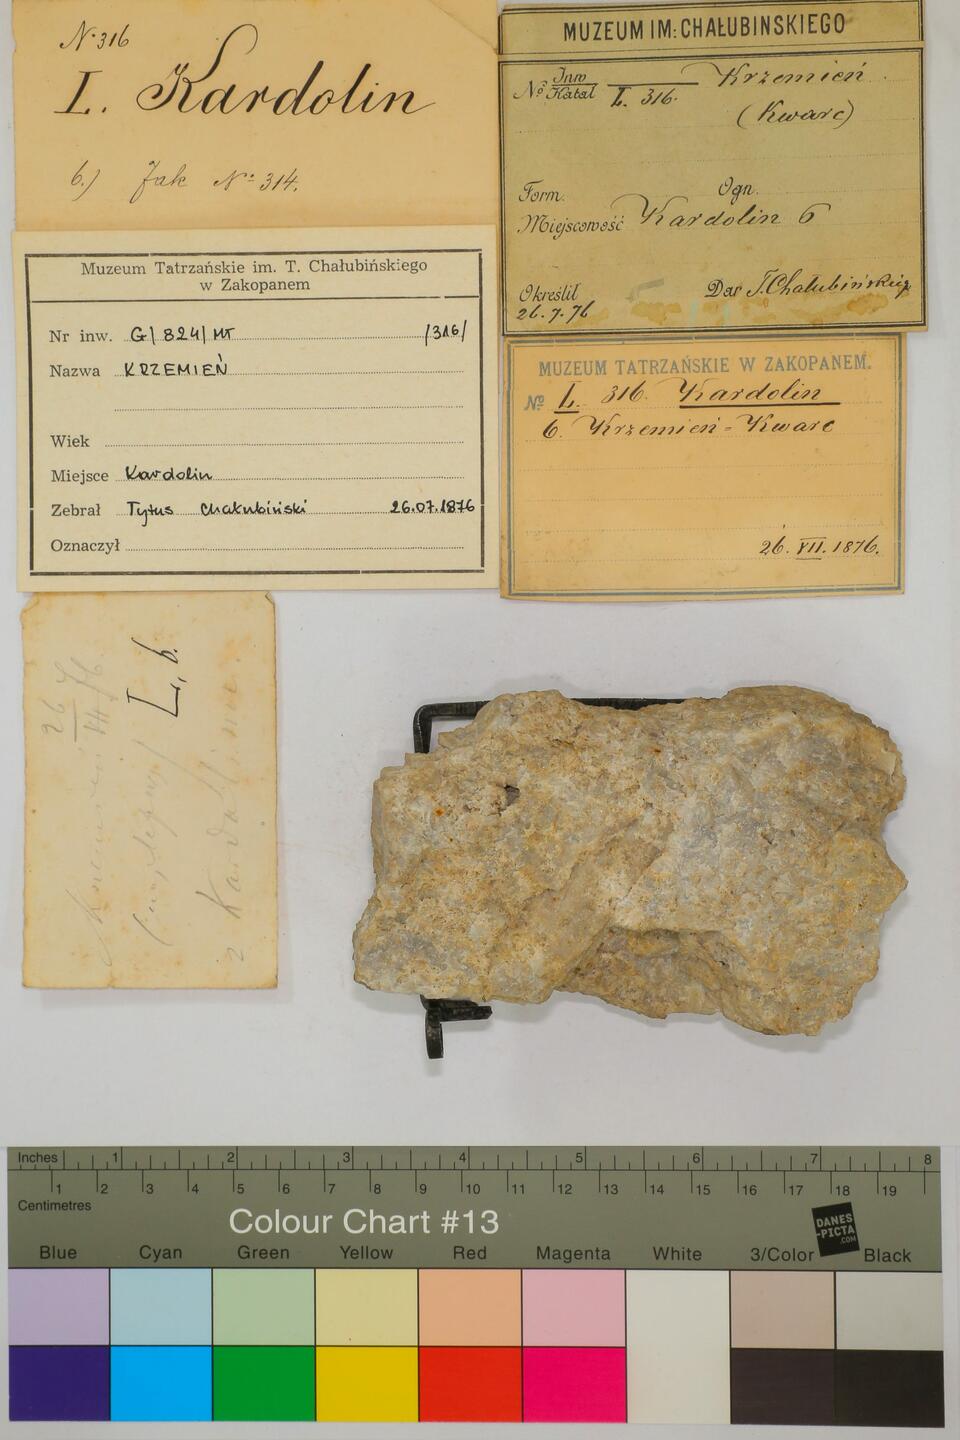 № 316
I. Kardolin
6.) Jak № 314.
MUZEUM IM: CHAŁUBINSKIEGO
№ Inw Katal I. 316. Krzemień
(Kwarc)
Form. Ogn.
Miejscowość Kardolin 6
Określił Dar T. Chałubińskieg
26.7.76
Muzeum Tatrzańskie im. T. Chałubińskiego
w Zakopanem
Nr inw. G/824/MT /316/
Nazwa KRZEMIEŃ
Wiek
Miejsce Kardolin
Zebrał Tytus Chałubiński 26.07.1876
Oznaczył
MUZEUM TATRZAŃSKIE W ZAKOPANEM.
№ I. 316. Kardolin
6. Krzemień - Kwarc
26. VII. 1876.
I, 6.
26
z Kardolinu.
Inches 1 2 3 4 5 6 7 8
1 2 3 4 5 6 7 8 9 10 11 12 13 14 15 16 17 18 19
Centimetres
Colour Chart #13
DANES
-PICTA
.COM
Blue Cyan Green Yellow Red Magenta White 3/Color Black